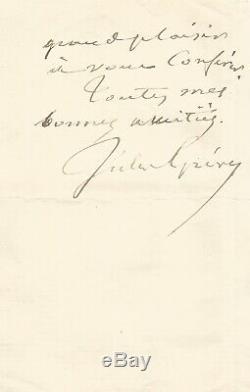 grand plaisir
à vous conférer
Toutes mes
bonnes amitiés.
Jules Grévy
ebay